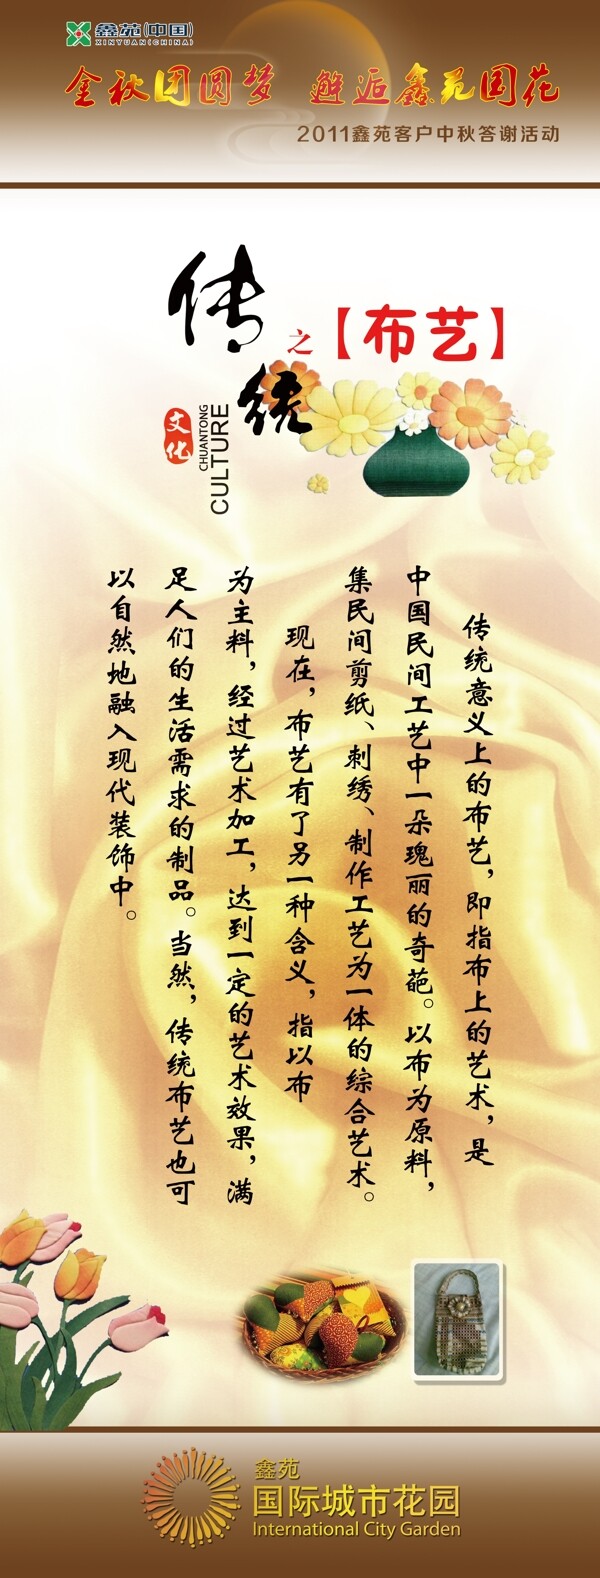 鑫苑(中国)
XINYUAN(CHINA)
金秋团圆梦 邂逅鑫苑国花
2011鑫苑客户中秋答谢活动
传统
之【布艺】
文化
CHUANTONG
CULTURE
传统意义上的布艺，即指布上的艺术，是
中国民间工艺中一朵瑰丽的奇葩。以布为原料，
集民间剪纸、刺绣、制作工艺为一体的综合艺术。
现在，布艺有了另一种含义，指以布
为主料，经过艺术加工，达到一定的艺术效果，满
足人们的生活需求的制品。当然，传统布艺也可
以自然地融入现代装饰中。
鑫苑
国际城市花园
International City Garden